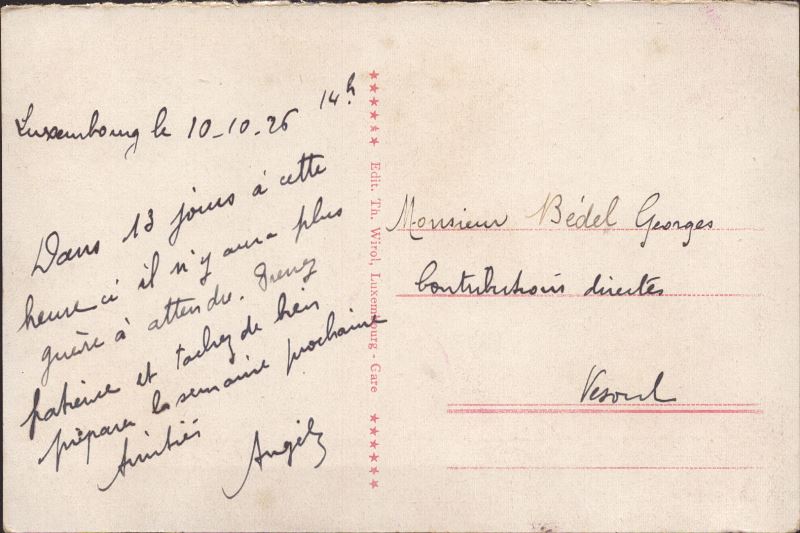 Luxembourg le 10-10-26 14h
Dans 13 jours à cette
heure ci il n'y aura plus
guère à attendre. Prenez
patience et tachez de bien
préparer la semaine prochaine
Amitiés
Angèle
Edit. Th. Wirol, Luxembourg - Gare
Monsieur Bédel Georges
Contributions directes
Vesoul